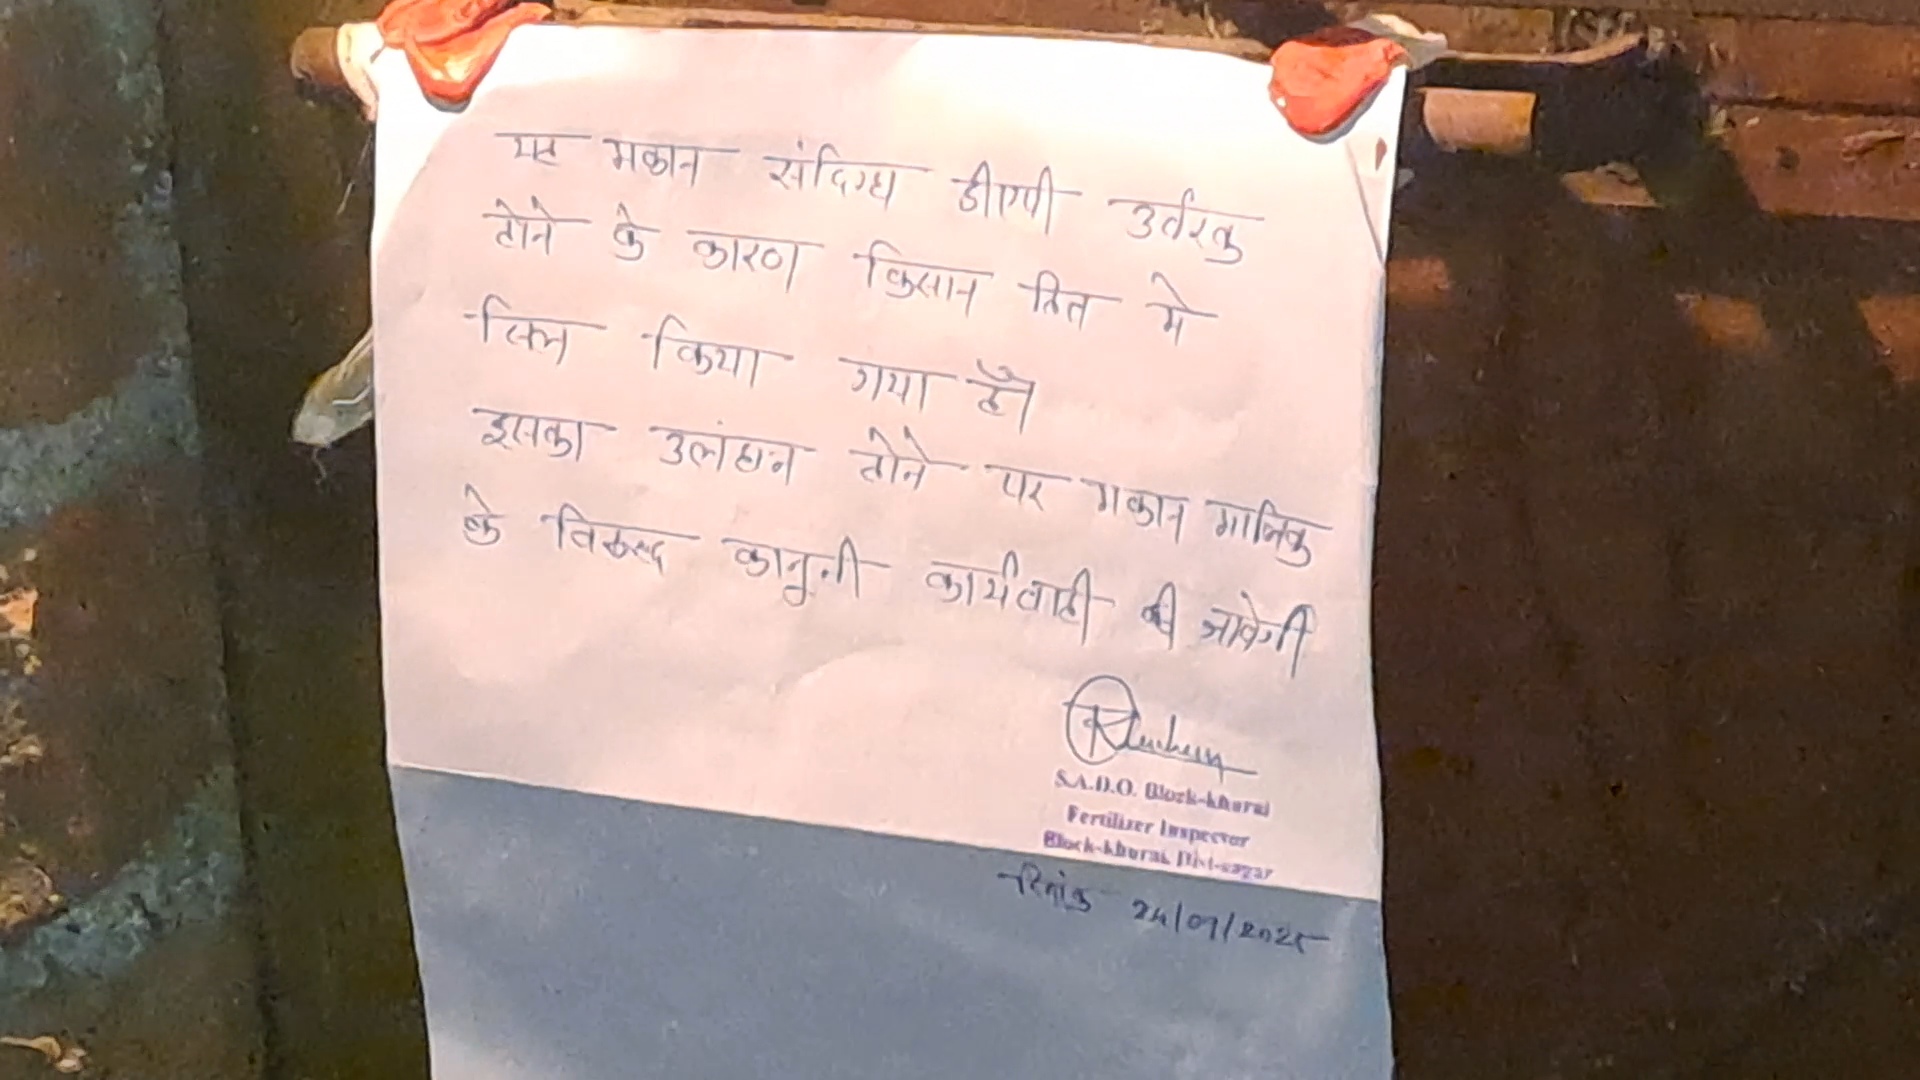 यह मकान संदिग्ध डीएपी उर्वरक
होने के कारण किसान हित मे
सिल किया गया है।
इसका उलंघन होने पर मकान मालिक
के विरूद्ध कानूनी कार्यवाही की जावेगी
S.A.D.O. Block-khurai
Fertilizer Inspector
Block-khurai, Dist-sagar
दिनांक